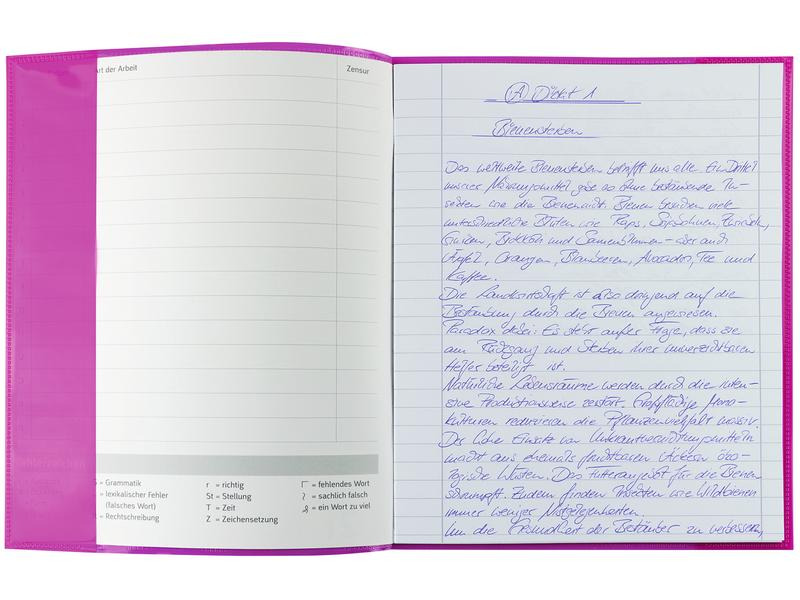 Art der Arbeit
Zensur
= Grammatik
= lexikalischer Fehler
(falsches Wort)
= Rechtschreibung
r = richtig
St = Stellung
T = Zeit
Z = Zeichensetzung
= fehlendes Wort
= sachlich falsch
= ein Wort zu viel
A Diktat 1
Bienensterben
Das weltweite Bienensterben betrifft uns alle. Ein Drittel
unserer Nahrungsmittel gäbe es ohne bestäubende In-
sekten wie die Bienen nicht. Bienen besuchen viele
unterschiedliche Blüten wie Raps, Sojabohnen, Zwiebeln,
Gurken, Brokkoli und Sonnenblumen – aber auch
Äpfel, Orangen, Blaubeeren, Avocados, Tee und
Kaffee.
Die Landwirtschaft ist also dringend auf die
Bestäubung durch die Bienen angewiesen.
Paradox dabei: Es steht außer Frage, dass sie
am Rückgang und Sterben ihrer unverzichtbaren
Helfer beteiligt ist.
Natürliche Lebensräume werden durch die inten-
sive Produktionsweise zerstört. Großflächige Mono-
kulturen reduzieren die Pflanzenvielfalt massiv.
Der hohe Einsatz von Unkrautvernichtungsmitteln
macht aus ehemals fruchtbaren Äckern öko-
logische Wüsten. Das Futterangebot für die Bienen
schrumpft. Zudem finden Insekten wie Wildbienen
immer weniger Nistgelegenheiten.
Um die Gesundheit der Bestäuber zu verbessern,